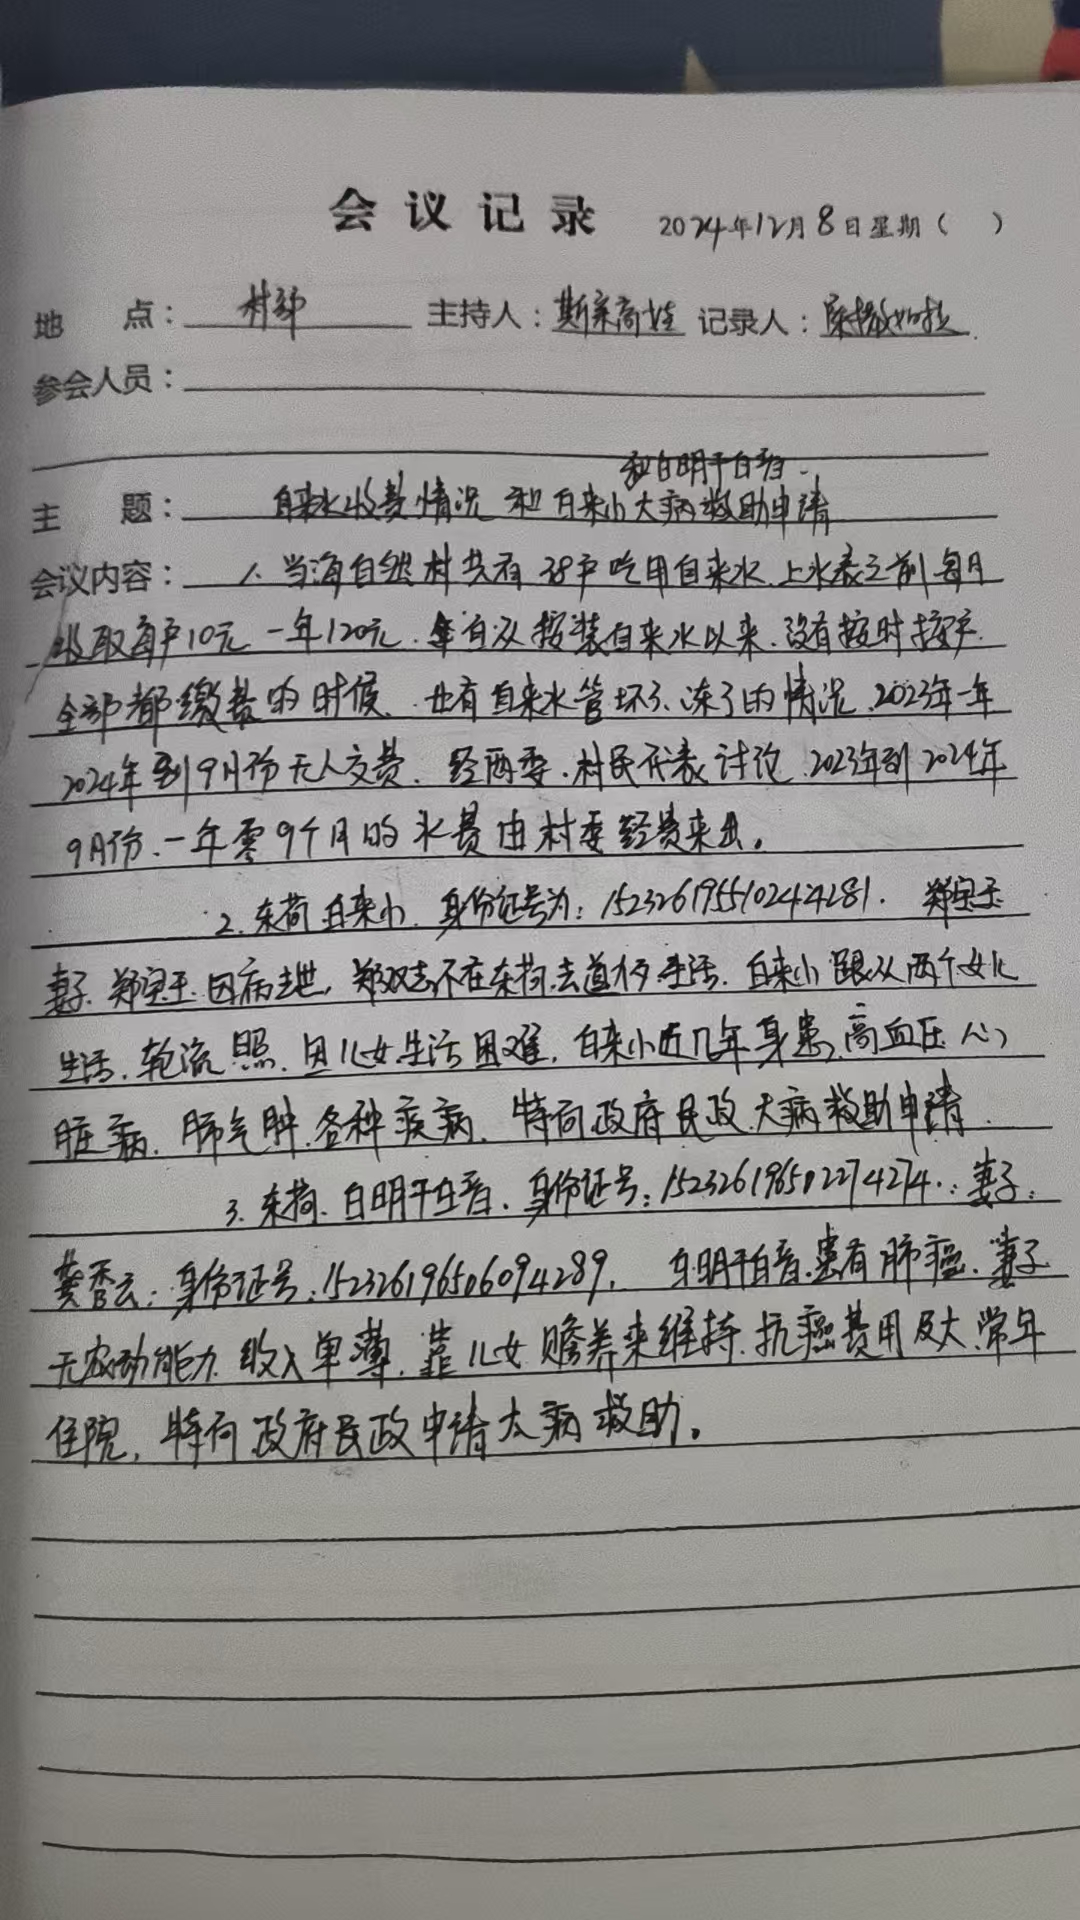 会议记录 2024年12月8日星期( )
地点: 村部 主持人: 斯琴高娃 记录人:
参会人员:
和白明干白音.
主题: 自来水收费情况和白来小大病救助申请
会议内容: 1、当海自然村共有38户吃用自来水、上水表之前每月
收取每户10元一年120元.自从按装自来水以来、没有按时按户
全部都缴费的时候、也有自来水管坏了、冻了的情况、2023年一年
2024年到9月份无人交费、经两委、村民代表讨论、2023年到2024年
9月份、一年零9个月的水费由村委经费来出。
2、东荷白来小、身份证号为:152326195510244281. 郑宝玉
妻子、郑宝玉因病去世,郑双志不在东荷、去道办生活、白来小跟从两个女儿
生活、轮流照、因儿女生活困难,白来小近几年身患高血压、心
脏病、肺气肿、各种疾病、特向政府民政大病救助申请.
3、东荷、白明干白音、身份证号:152326196502274274.:妻子:
龚香云:身份证号:152326196506094289. 白明干白音患有肺癌、妻子
无农动能力、收入单薄、靠儿女赡养来维持、抗癌费用及大、常年
住院,特向政府民政申请大病救助。